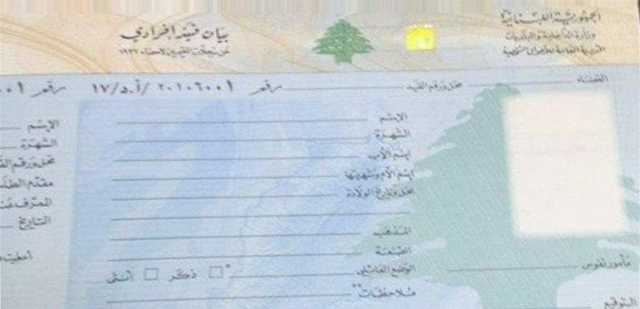 الجمهورية اللبنانية
وزارة الداخلية والبلديات
المديرية العامة للأحوال الشخصية
بيان قيد إفرادي
عن سجلات المقيمين لإحصاء ١٩٣٢
القضاء
محل ورقم القيد
رقم ٢٠١٠٦٠٠١ /أ.د/١٧
رقم
الإسم
الشهرة
إسم الأب
إسم الأم وشهرتها
محل وتاريخ الولادة
المذهب
الصنعة
الوضع العائلي
ذكر
أنثى
ملاحظات**
مأمور نفوس
التوقيع
الإسم
الشهرة
محل ورقم
مقدم
التاريخ